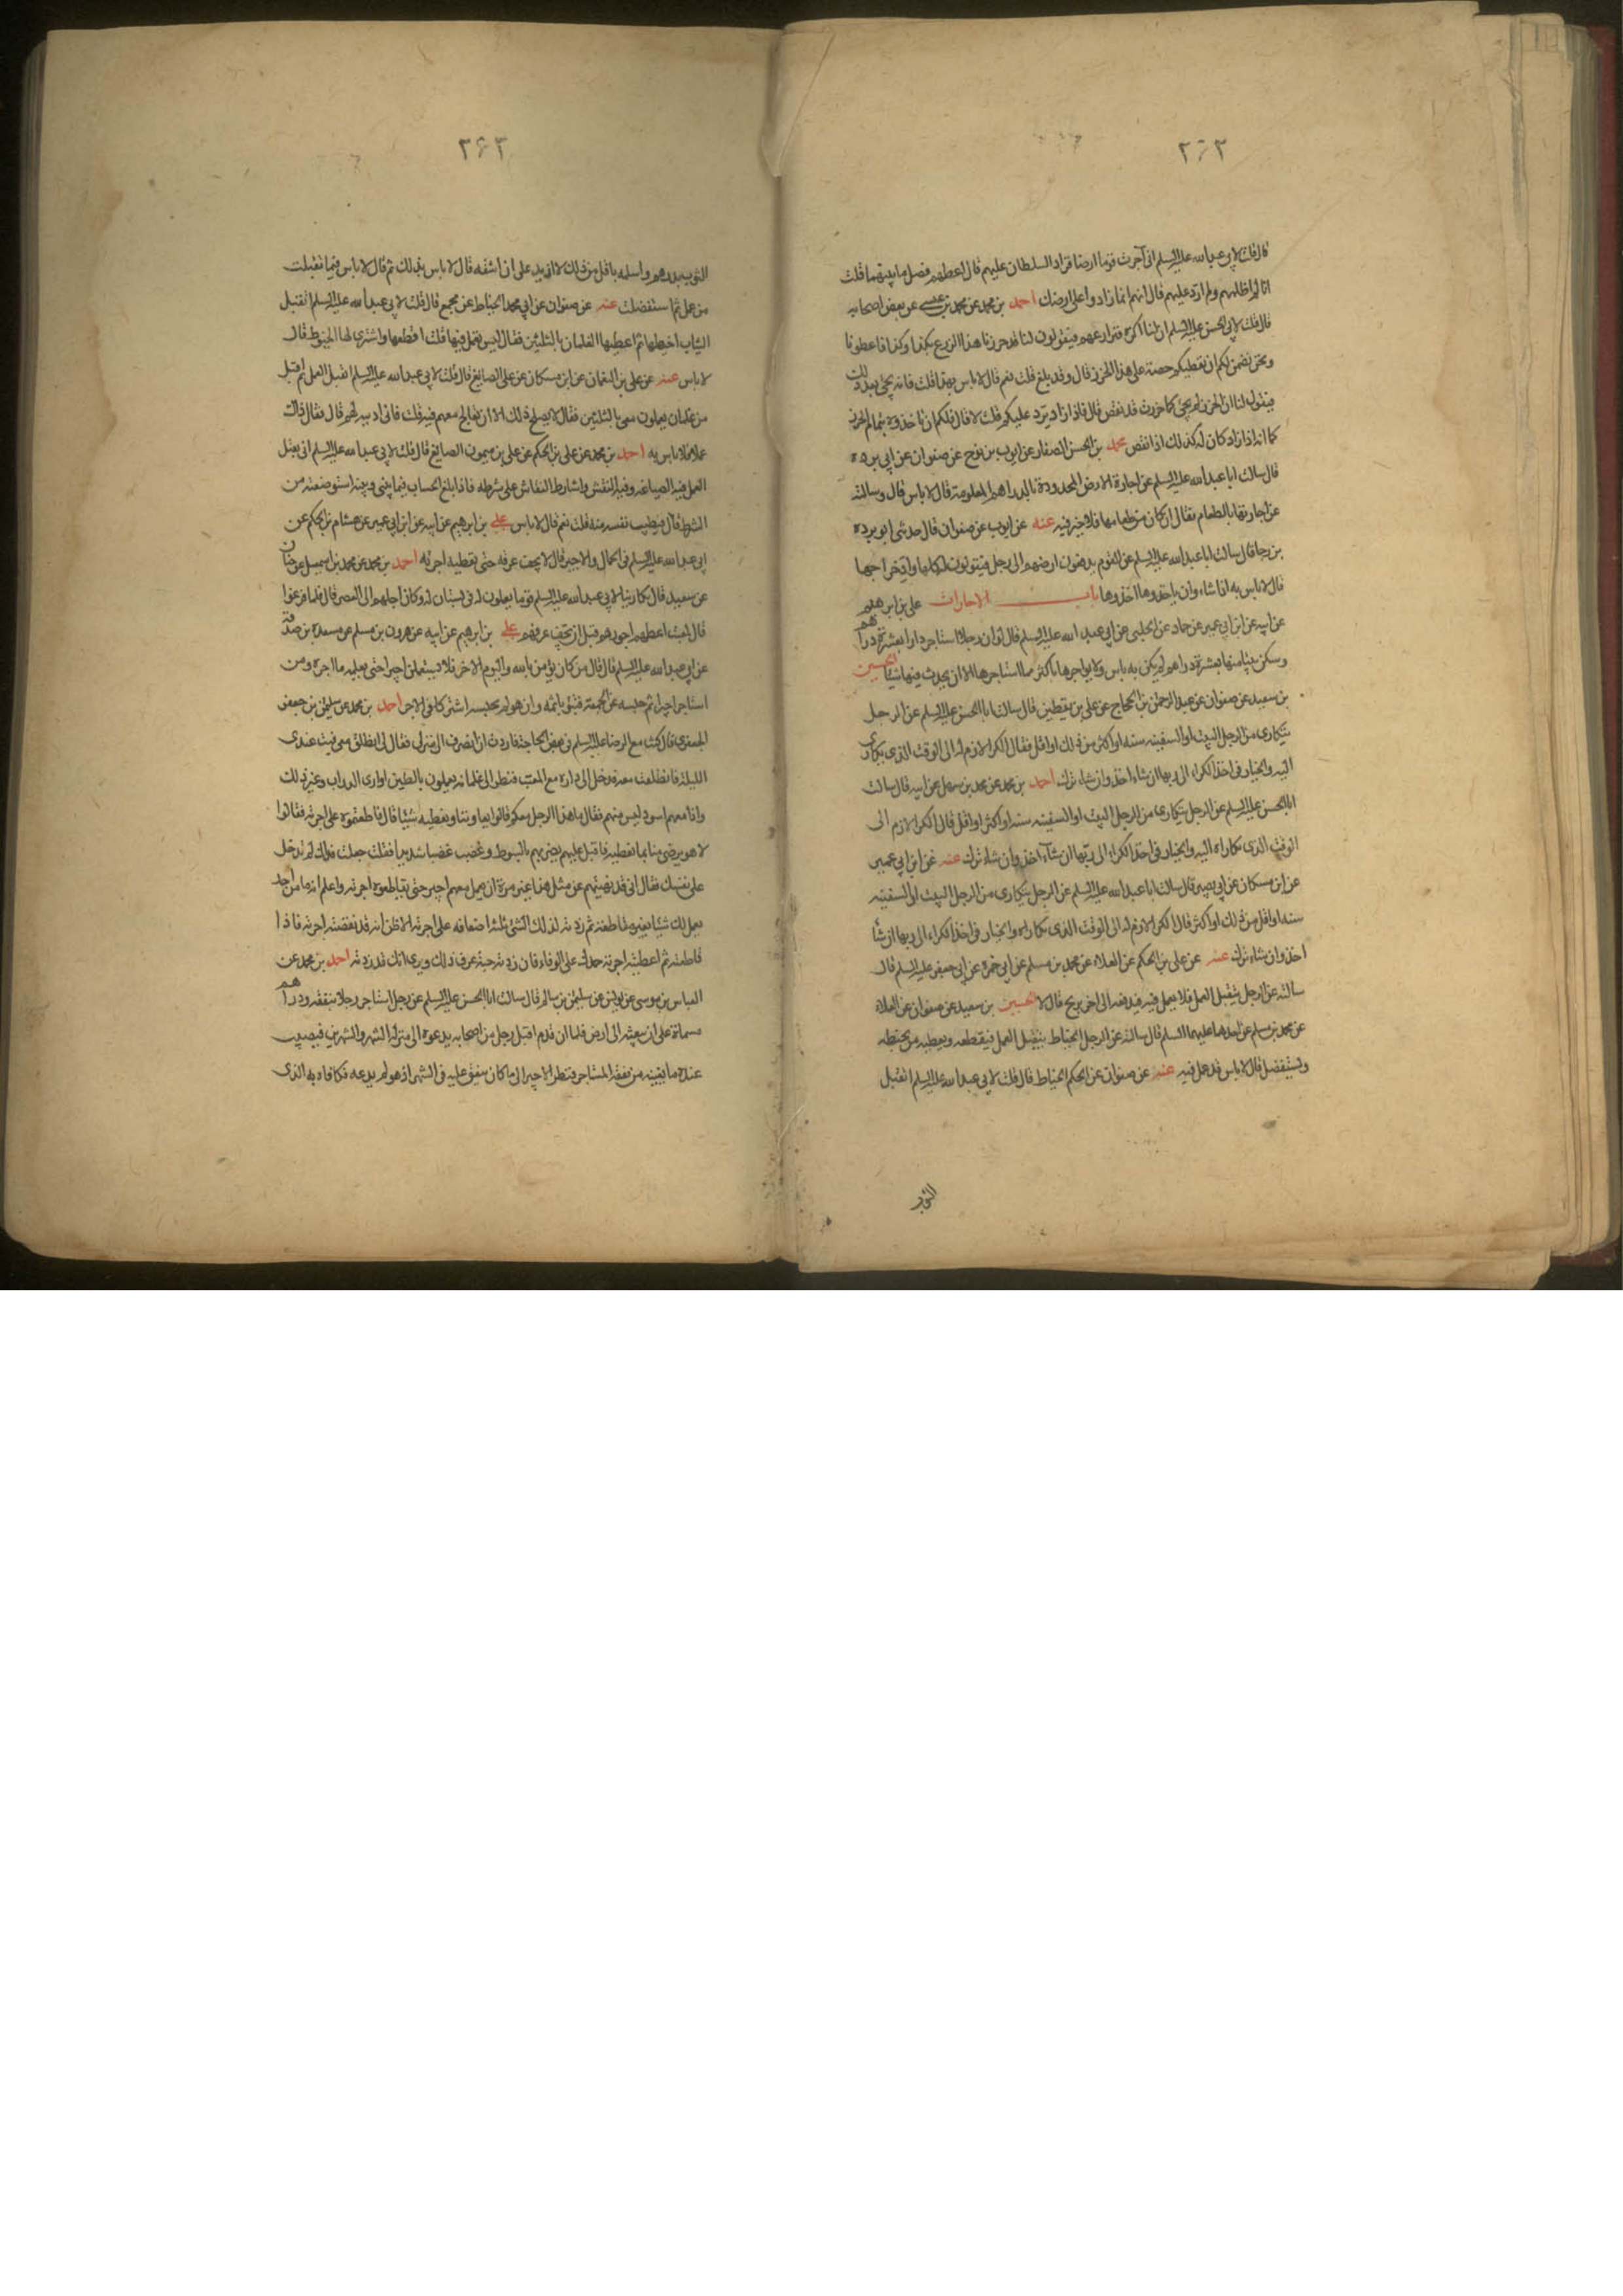 ٢٦٢
قال قلت لابي عبد الله عليه السلم اني آجرت قوما ارضا فزاد السلطان عليهم قال اعطهم فضل ما بينهما قلت
انا لم اظلمهم ولم ازد عليهم قال انهم انما زادوا على ارضك احمد بن محمد عن محمد بن عيسى عن بعض اصحابه
قال قلت لابي الحسن عليه السلم ان لنا اكرة فنزارعهم فيقولون لنا قد حزرنا هذا الزرع بكذا وكذا فاعطونا
ونحن نضمن لكم ان نعطيكم حصة على هذا الحزر قال وقد بلغ قلت نعم قال لا باس بهذا قلت فانه يجئ بعد ذلك
فيقول لنا ان الحزر لم يجئ كما حزرت قد نقص قال فاذا زاد يرد عليكم قلت لا قال فلكم ان تاخذوه بتمام الحزر
كما انه اذا زاد كان له كذلك اذا نقص محمد بن الحسن الصفار عن ايوب بن نوح عن صفوان عن ابي برده
قال سالت ابا عبد الله عليه السلم عن اجارة الارض المحدودة بالدراهم المعلومة قال لا باس قال وسالته
عن اجارتها بالطعام فقال ان كان من طعامها فلا خير فيه عنه عن ايوب عن صفوان قال حدثني ابو برده
بن رجا قال سالت ابا عبد الله عليه السلم عن القوم يدفعون ارضهم الى رجل فيقولون له كلها واد خراجها
قال لا باس به اذا شاءوا ان ياخذوها اخذوها باب الاجارات علي بن ابرهيم
عن ابيه عن ابن ابي عمير عن حماد عن الحلبي عن ابي عبد الله عليه السلم قال لو ان رجلا استاجر دارا بعشرة دراهم
وسكن بيتا منها بعشرة دراهم لم يكن به باس ولا يؤاجرها باكثر مما استاجرها الا ان يحدث فيها شيئا الحسين
بن سعيد عن صفوان عن عبد الرحمن بن الحجاج عن علي بن يقطين قال سالت ابا الحسن عليه السلم عن الرجل
يتكارى من الرجل البيت او السفينه سنه او اكثر من ذلك او اقل فقال الكرا لازم له الى الوقت الذى تكارى
اليه والخيار في اخذ الكراء الى ربها ان شاء اخذ وان شاء ترك احمد بن محمد عن محمد بن سهل عن ابيه قال سالت
ابا الحسن عليه السلم عن الرجل يتكارى من الرجل البيت او السفينه سنه او اكثر او اقل قال الكرا لازم الى
الوقت الذى تكاراه اليه والخيار فى اخذ الكراء الى ربها ان شاء اخذ وان شاء ترك عنه عن ابن ابي عمير
عن ابن مسكان عن ابي بصير قال سالت ابا عبد الله عليه السلم عن الرجل يتكارى من الرجل البيت او السفينه
سنه او اقل من ذلك او اكثر قال الكرا لازم له الى الوقت الذى تكاراه والخيار فى اخذ الكراء الى ربها ان شا
اخذ وان شاء ترك عنه عن علي بن الحكم عن العلاء عن محمد بن مسلم عن ابي حمزة عن ابي جعفر عليه السلم قال
سالته عن الرجل يتقبل العمل فلا يعمل فيه فيدفعه الى اخر يربح قال لا الحسين بن سعيد عن صفوان عن العلاء
عن محمد بن مسلم عن احدهما عليهما السلم قال سالته عن الرجل الخياط يتقبل العمل فيقطعه ويعطيه من يخيطه
ويستفضل قال لا باس قد عمل فيه عنه عن صفوان عن الحكم الخياط قال قلت لابي عبد الله عليه السلم اتقبل
الثوب
٢٦٣
الثوب بدرهم واسلمه باقل من ذلك لا ازيد على ان اشقه قال لا باس بذلك ثم قال لا باس فيما تقبلت
من عمل ثم استفضلت عنه عن صفوان عن ابي محمد الخياط عن مجمع قال قلت لابي عبد الله عليه السلم اتقبل
الثياب اخيطها ثم اعطيها الغلمان بالثلثين فقال اليس تعمل فيها قلت اقطعها واشترى لها الخيوط قال
لا باس عنه عن علي بن النعمان عن ابن مسكان عن علي الصايغ قال قلت لابي عبد الله عليه السلم اتقبل العمل ثم اقبله
من غلمان يعملون معي بالثلثين فقال لا يصلح ذلك الا ان تعالج معهم فيه قلت فاني اذيبه لهم قال فقال ذاك
عمل فلا باس به احمد بن محمد عن علي بن الحكم عن علي بن ميمون الصايغ قال قلت لابي عبد الله عليه السلم اني اتقبل
العمل فيه الصياغه وفيه النقش فاشارط النقاش على شرطه فاذا بلغ الحساب فيما بيني وبينه استوضعته من
الشرط قال فيطيب نفسه منه قلت نعم قال لا باس علي بن ابرهيم عن ابيه عن ابن ابي عمير عن هشام بن الحكم عن
ابي عبد الله عليه السلم في الحمال والاجير قال لا يجف عرقه حتى تعطيه اجرته احمد بن محمد عن محمد بن اسمعيل عن حنان
عن سعيد قال تكارينا لابي عبد الله عليه السلم قوما يعملون له في بستان له وكان اجلهم الى العصر قال فلما فرغوا
قال لمعتب اعطهم اجورهم قبل ان يجف عرقهم علي بن ابرهيم عن ابيه عن هرون بن مسلم عن مسعدة بن صدقة
عن ابي عبد الله عليه السلم قال قال من كان يؤمن بالله واليوم الاخر فلا يستعملن اجيرا حتى يعلمه ما اجره ومن
استاجر اجيرا ثم حبسه عن الجمعة تبوء باثمه وان هو لم يحبسه اشتركا في الاجر احمد بن محمد عن سليمن بن جعفر
الجعفري قال كنت مع الرضا عليه السلم في بعض الحاجة فاردت ان انصرف الى منزلي فقال لي انطلق معي فبت عندى
الليلة فانطلقت معه فدخل الى داره مع المعتب فنظر الى غلمانه يعملون بالطين اوارى الدواب وغير ذلك
واذا معهم اسود ليس منهم فقال ما هذا الرجل معكم قالوا يعاوننا ونعطيه شيئا قال قاطعتموه على اجرته فقالوا
لا هو يرضى منا بما نعطيه فاقبل عليهم يضربهم بالسوط وغضب غضبا شديدا فقلت جعلت فداك لم تدخل
على نفسك فقال اني قد نهيتهم عن مثل هذا غير مرة ان يعمل معهم اجير حتى يقاطعوه اجرته واعلم انه ما من احد
يعمل لك شيئا بغير مقاطعة ثم زدته لذلك الشئ ثلثة اضعافه على اجرته الا ظن انه قد نقصته اجرته فاذا
قاطعته ثم اعطيته اجرته حمدك على الوفاء فان زدته حبة عرف ذلك ويرى انك قد زدته احمد بن محمد عن
العباس بن موسى عن يونس عن سليمن بن سالم قال سالت ابا الحسن عليه السلم عن رجل استاجر رجلا بنفقه ودراهم
مسماة على ان يبعثه الى ارض فلما ان قدم اقبل رجل من اصحابه يدعوه الى منزله الشهر والشهرين فيصيب
عنده ما يغنيه من نفقة المستاجر فنظر الاجير الى ما كان ينفق عليه في الشهر اذ هو لم يدعه فكافاه به الذى